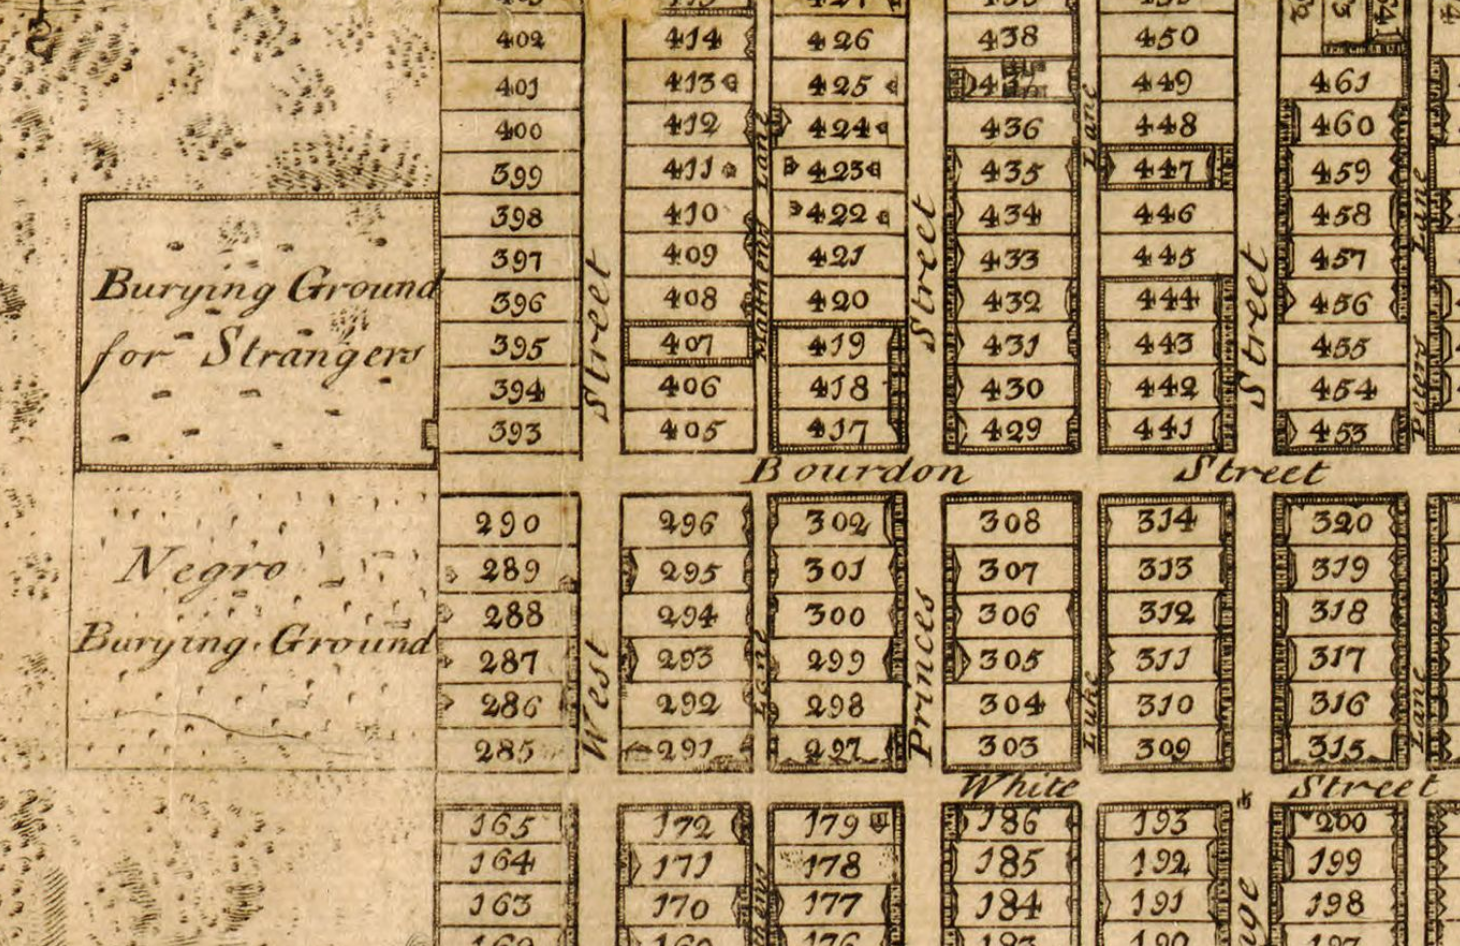 402 414 426 438 450
401 413 425 449 461
400 412 424 436 448 460
399 411 423 435 447 459
398 410 422 434 446 458
397 409 421 433 445 457
396 408 420 432 444 456
395 407 419 431 443 455
394 406 418 430 442 454
393 405 417 429 441 453
Burying Ground
for Strangers
Street
Lane
Street
Lane
Street
Peters Lane
Bourdon Street
290 296 302 308 314 320
289 295 301 307 313 319
288 294 300 306 312 318
287 293 299 305 311 317
286 292 298 304 310 316
285 291 297 303 309 315
Negro
Burying Ground
West
Lane
Princes
Luke
Lane
White Street
165 172 179 186 193 200
164 171 178 185 192 199
163 170 177 184 191 198